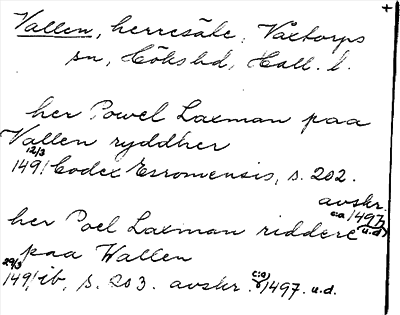 Vallen, herresäte, Våxtorps
sn, Höks hd, Hall. l.
her Powel Laxman paa
Vallen ryddher
12/3
1491 Codex Esromensis, s. 202.
avskr.
c:a 1497
u.d.
her Poel Laxman riddere
paa Wallen
29/3
1491 ib, s. 203. avskr. c:a 1497. u.d.